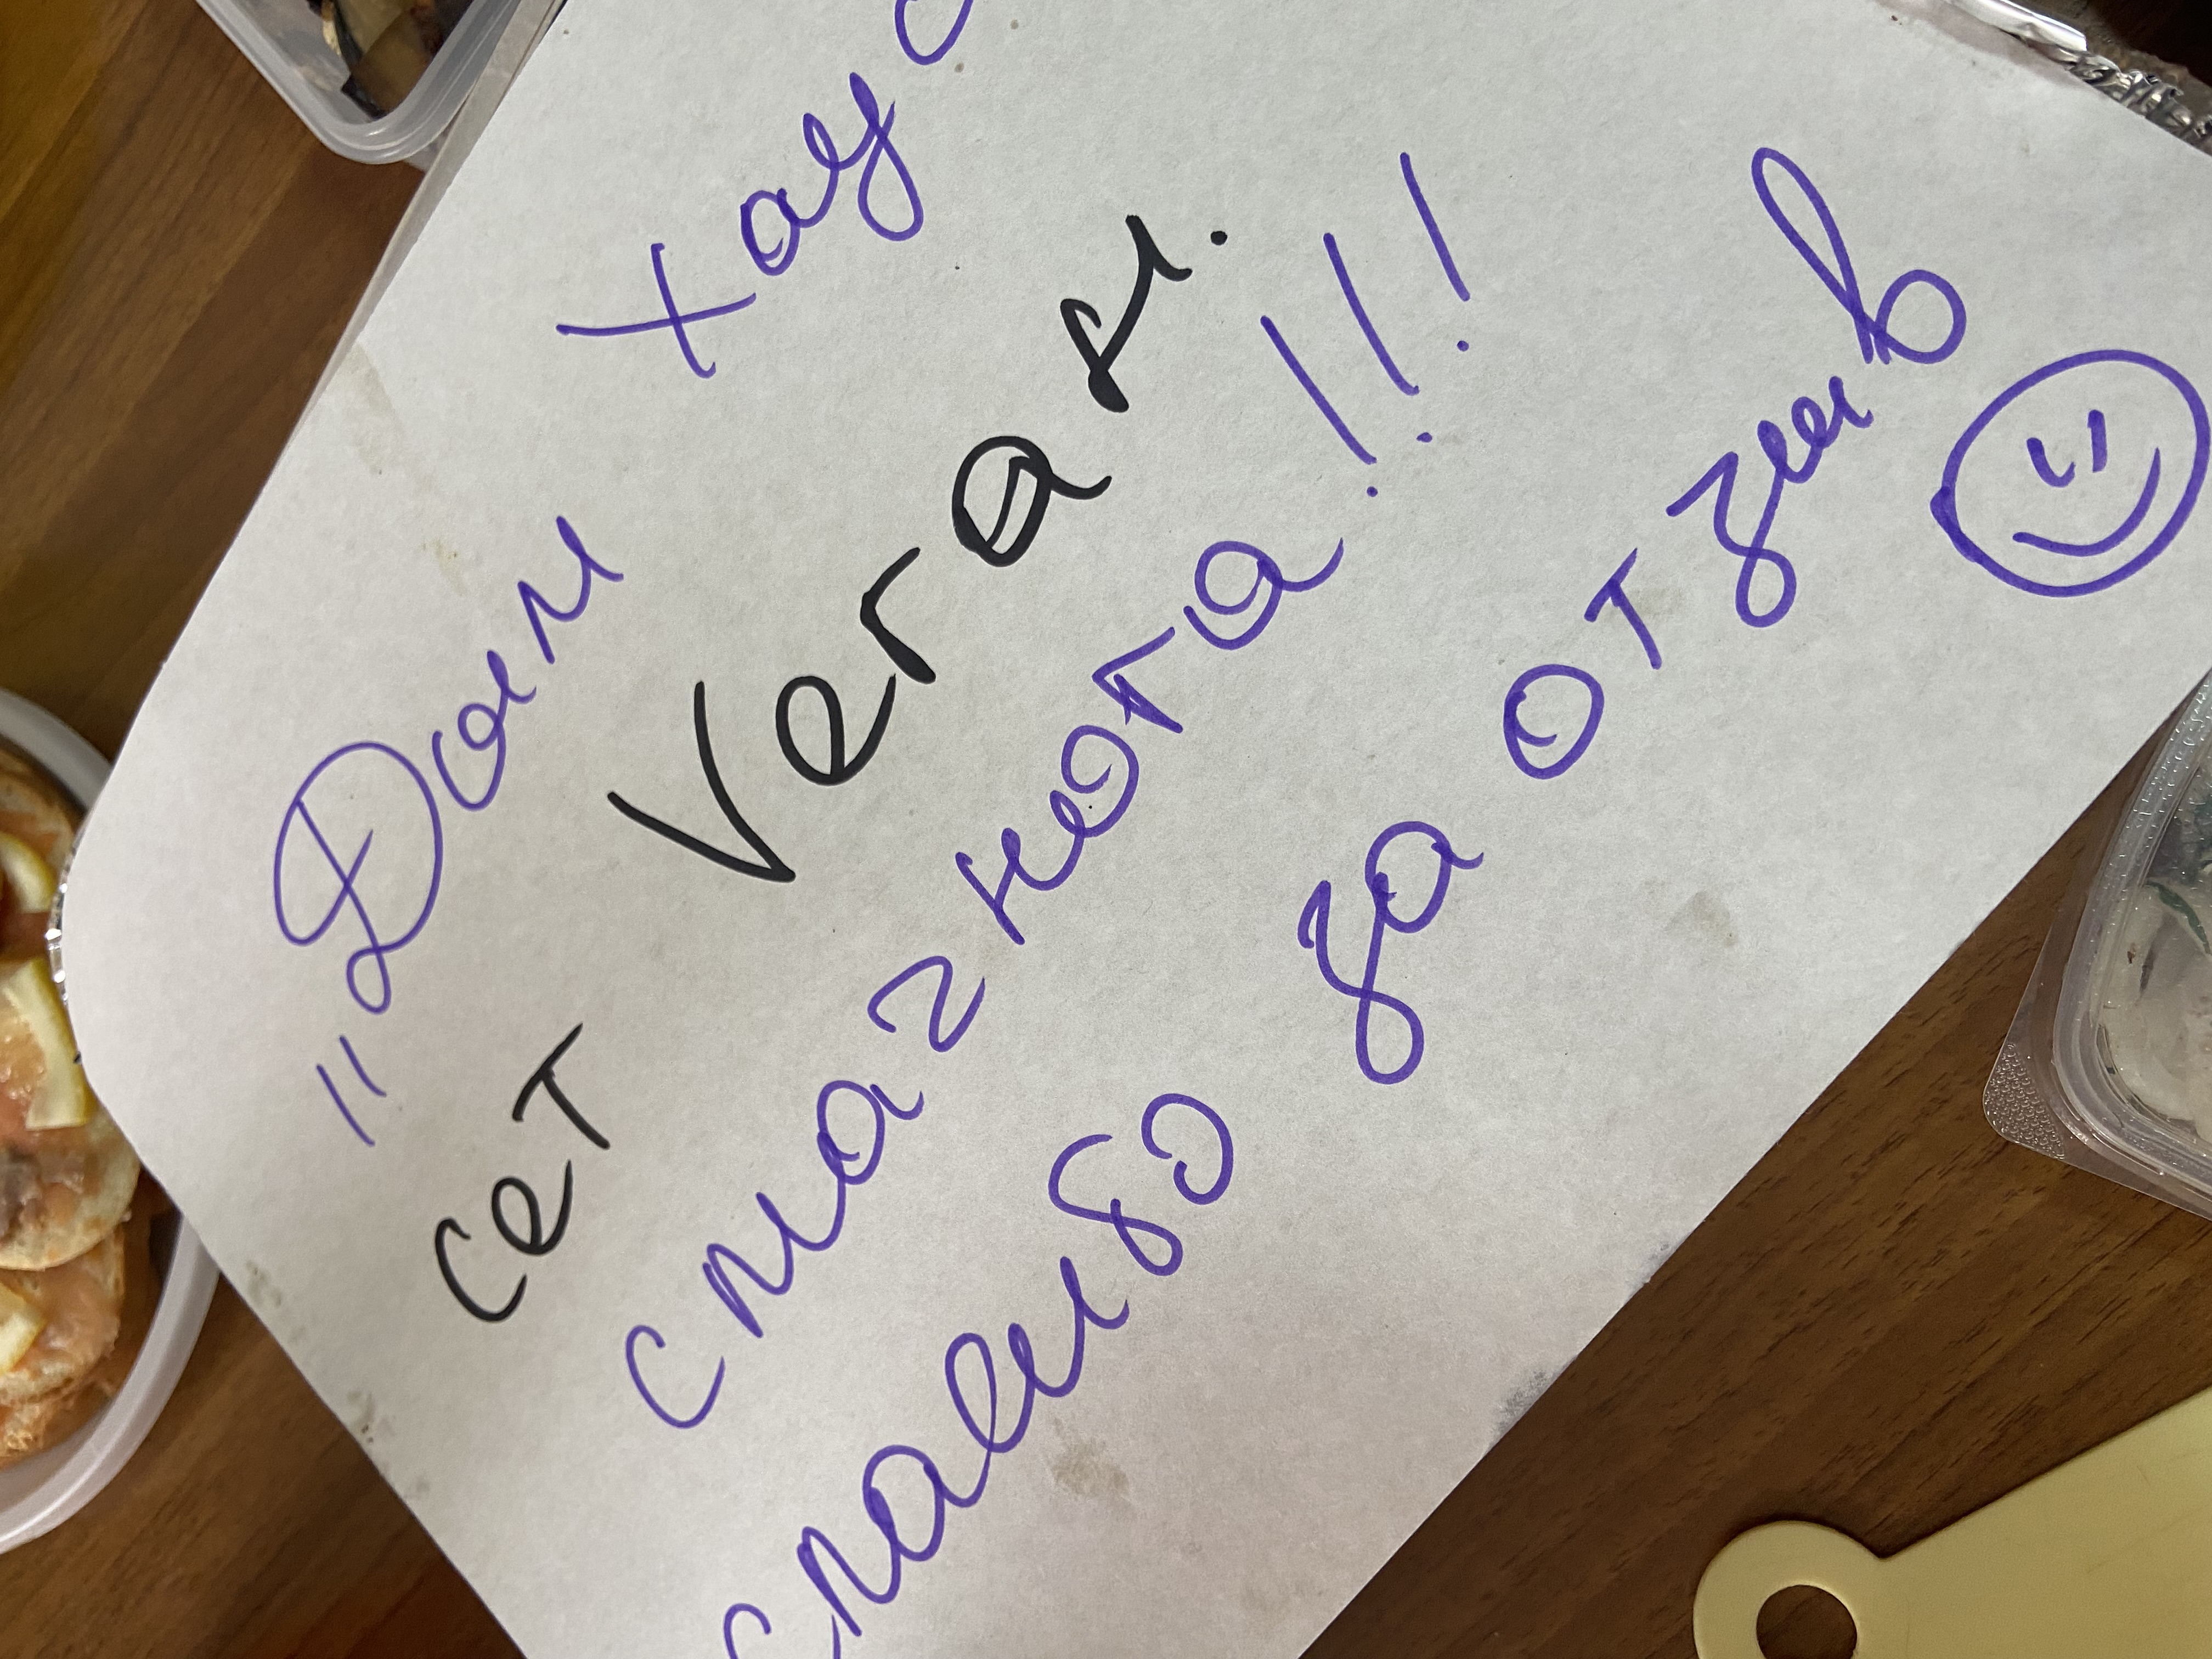 "Дом хаус
сет Vеган.
смачнота!!!
спасибо за отзыв